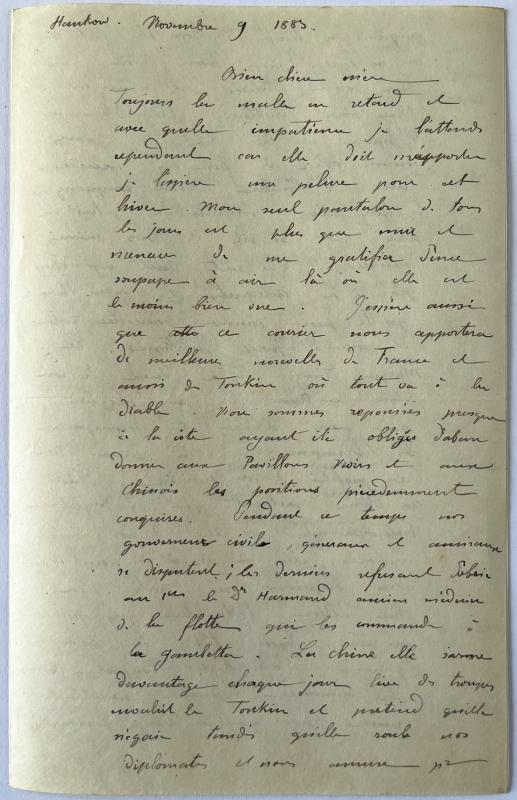 Hankow. Novembre 9 1883.
Bien chère mère
Toujours les malles en retard et
avec quelle impatience je l'attends
cependant car elle doit m'apporter
je l'espère une pelure pour cet
hiver. Mon seul pantalon de tous
les jours est plus que mur et
menace de me gratifier d'une
soupape à air là où elle est
le moins bien vue. J'espère aussi
que ce courrier nous apportera
de meilleures nouvelles de France et
aussi du Tonkin où tout va à la
diable. Nous sommes repoussés presque
à la côte ayant été obligés d'aban
donner aux Pavillons Noirs et aux
Chinois les positions précédemment
conquises. Pendant ce temps nos
gouverneurs civils, généraux et amiraux
se disputent ; les derniers refusant d'obéir
au 1er le Dr Harmand ancien médecin
de la flotte qui les commande à
la Gambetta. La Chine elle s'arme
davantage chaque jour livre des troupes
le Tonkin et prétend qu'elle
négocie tandis qu'elle roule nos
diplomates et nous amuse pr